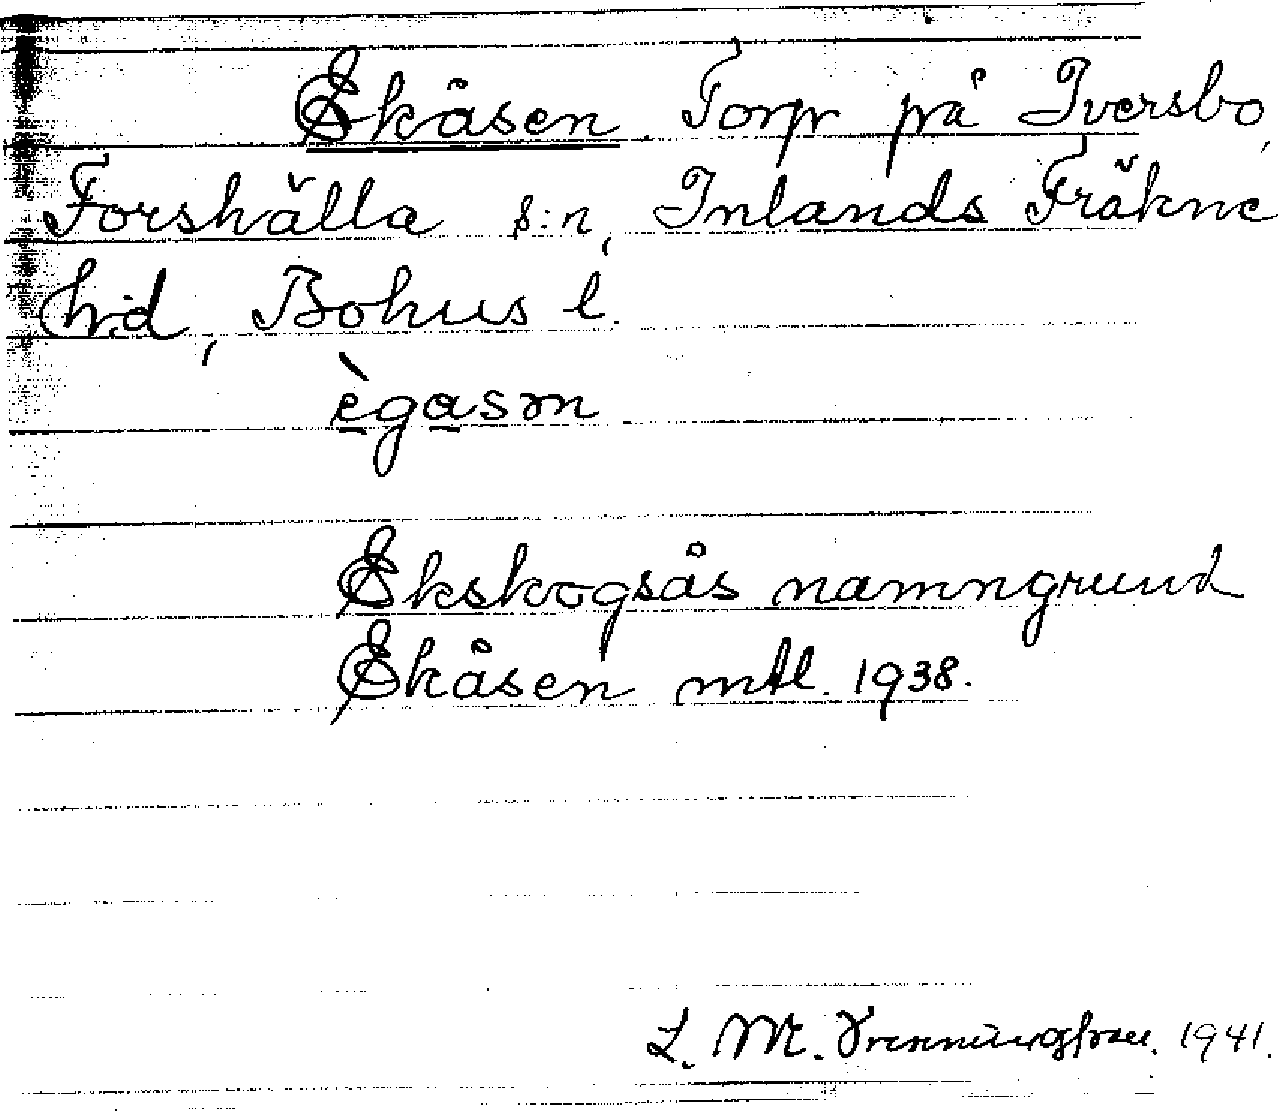 Ekåsen. Torp på Iversbo,
Forshälla s:n, Inlands Fräkne
h:d, Bohus l.
ègasən
Ekskogsås namngrund
Ekåsen mtl. 1938.
L. M. 1941.